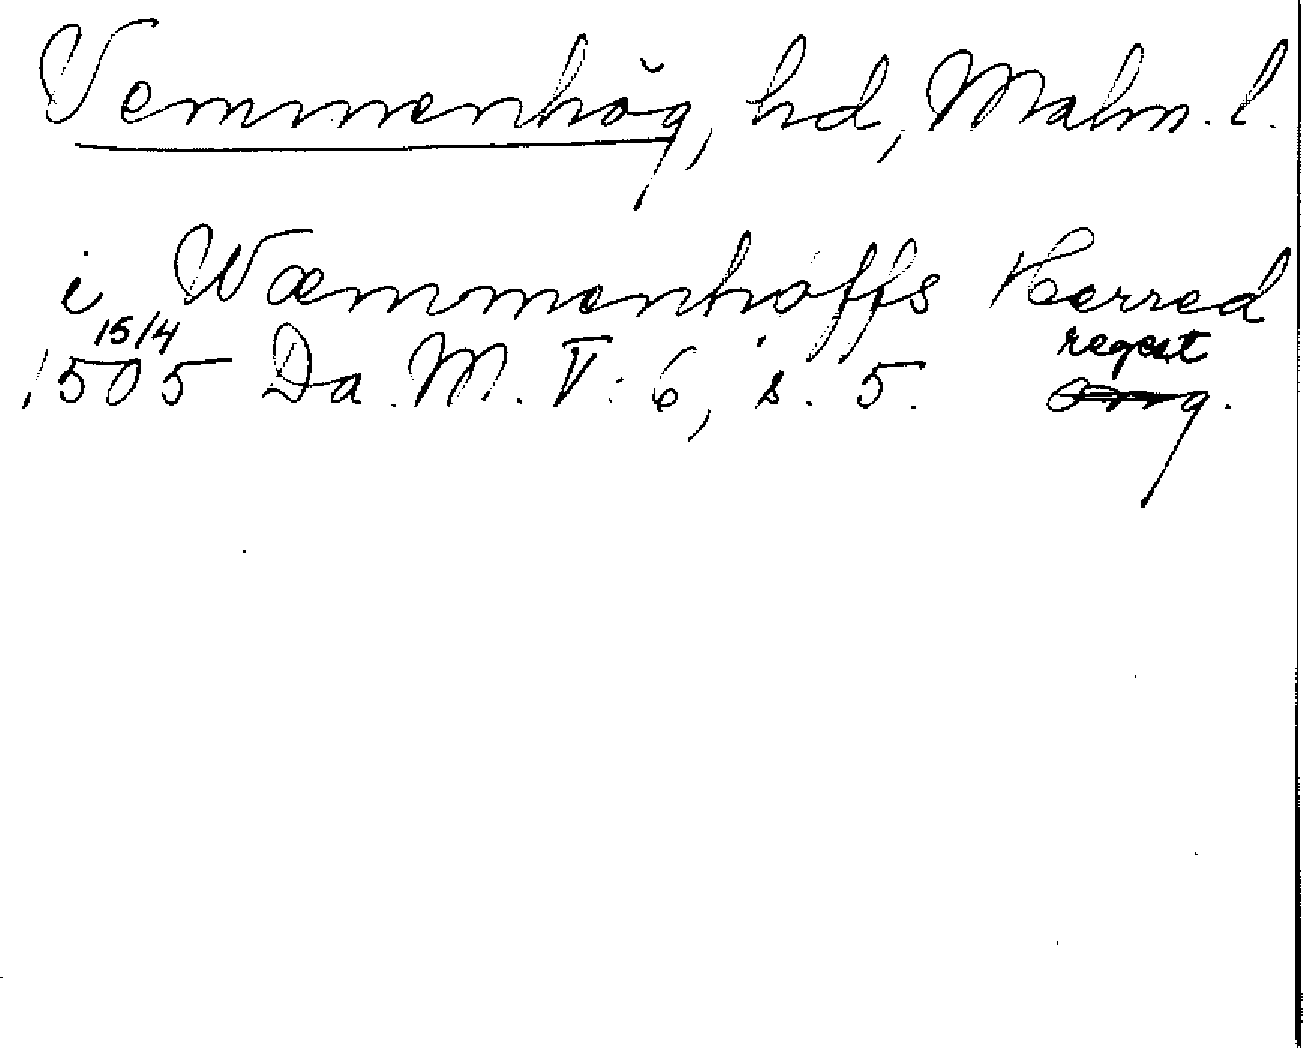 Vemmenhög, hd, Malm. l.
i Wæmmenhöffs Herred
15/4 regest
1505 Da. M. V: 6, s. 5. Orig.